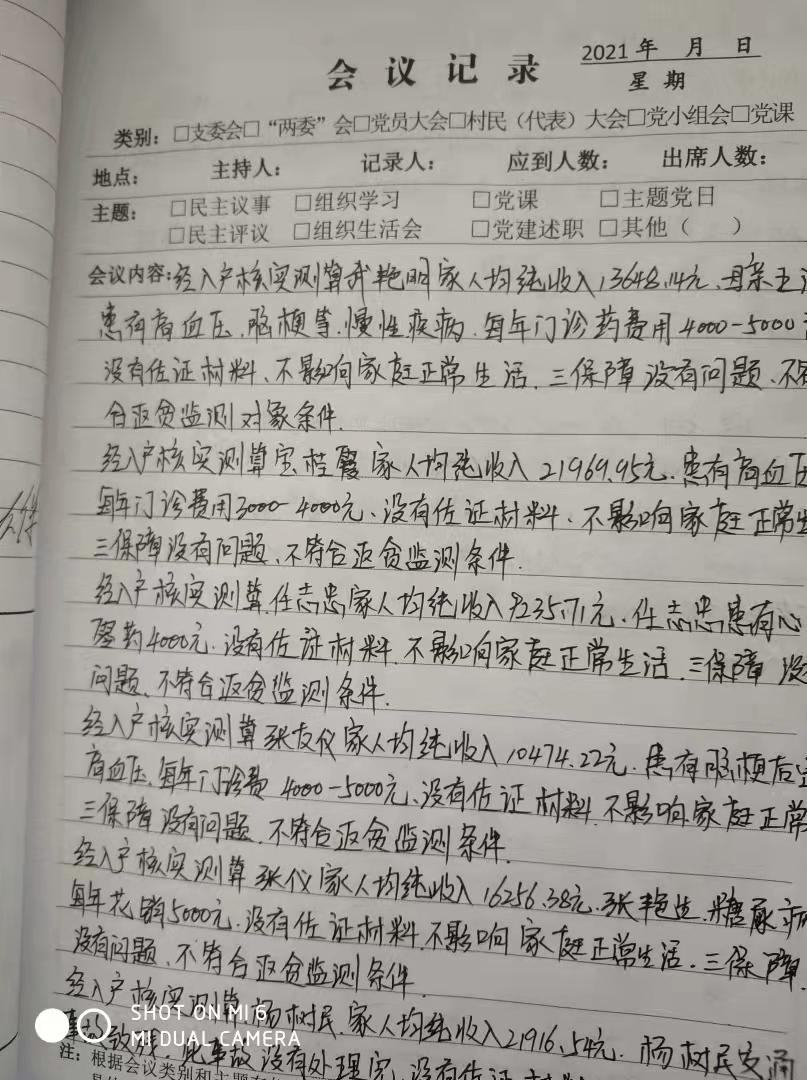 会议记录
2021年 月 日
星 期
类别：□支委会□“两委”会□党员大会□村民（代表）大会□党小组会□党课
地点： 主持人： 记录人： 应到人数： 出席人数：
主题： □民主议事 □组织学习 □党课 □主题党日
□民主评议 □组织生活会 □党建述职 □其他（ ）
会议内容：经入户核实测算武艳明家人均纯收入13648.14元，母亲王
患有高血压、脑梗等、慢性疾病，每年门诊药费用4000-5000
没有佐证材料、不影响家庭正常生活，三保障没有问题、不符
合返贫监测对象条件.
经入户核实测算宝桂霞家人均纯收入21969.95元.患有高血压
每年门诊费用3000-4000元、没有佐证材料、不影响家庭正常生
三保障没有问题、不符合返贫监测条件.
经入户核实测算,任志忠家人均纯收入9235.71元.任志忠患有心
药4000元.没有佐证材料.不影响家庭正常生活.三保障没
问题、不符合返贫监测条件.
经入户核实测算张友仪家人均纯收入10474.22元.患有脑梗后
高血压、每年门诊费4000-5000元、没有佐证材料.不影响家庭正常
三保障没有问题、不符合返贫监测条件.
经入户核实测算张仪家人均纯收入16256.38元.张艳生.糖尿病
每年花销5000元.没有佐证材料.不影响家庭正常生活.三保障.
没有问题、不符合返贫监测条件.
经入户核实测算,杨树民.家人均纯收入21916.54元.杨树民交通
事故致残.此事故没有处理完.没有佐证材料
注：根据会议类别和主题
SHOT ON MI 6
MI DUAL CAMERA